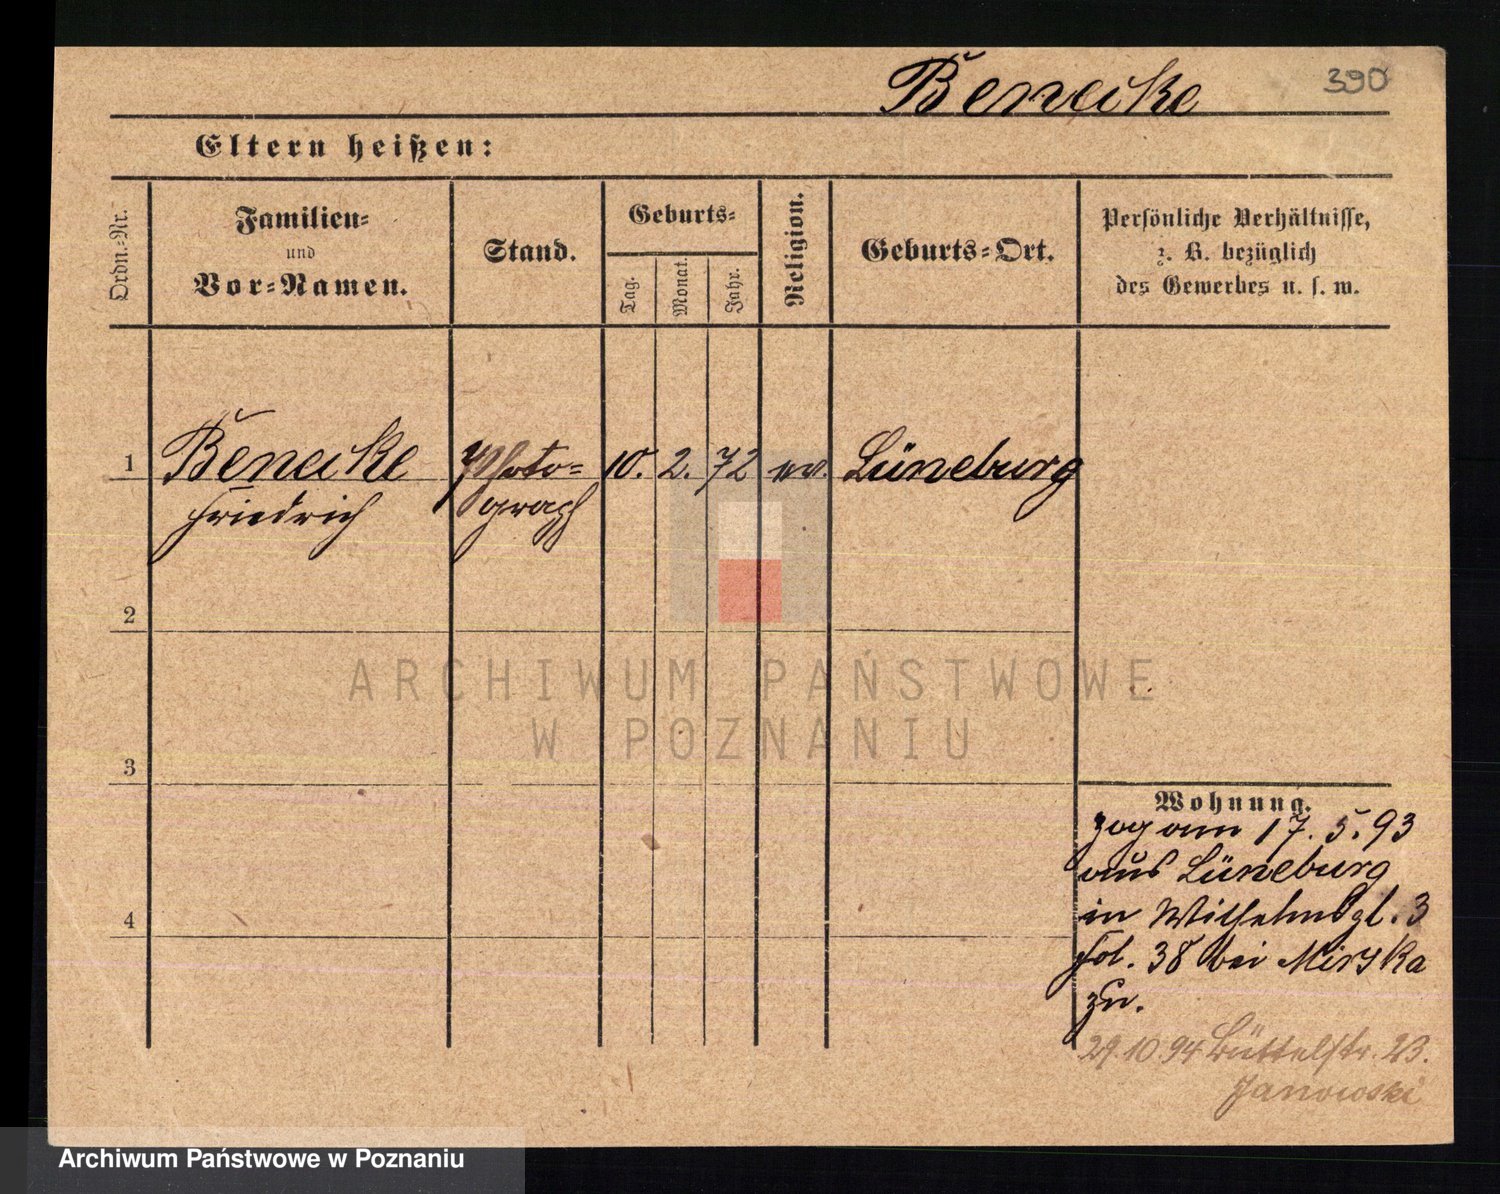 Benecke
390
Eltern heißen:
Ordn.=Nr.
Familien=
und
Vor=Namen.
Stand.
Geburts=
Tag.
Monat.
Jahr.
Religion.
Geburts=Ort.
Persönliche Verhältnisse,
z. B. bezüglich
des Gewerbes u. s. w.
1 Benecke Photo= 10. 2. 72 ev. Lüneburg
Friedrich graph
2
ARCHIWUM PAŃSTWOWE
W POZNANIU
3
Wohnung.
zog am 17. 5. 93
aus Lüneburg
4
in Wilhelmspl. 3
fol. 38 bei Mirska
zu.
29.10.94 Büttelstr. 23.
Janowski
Archiwum Państwowe w Poznaniu